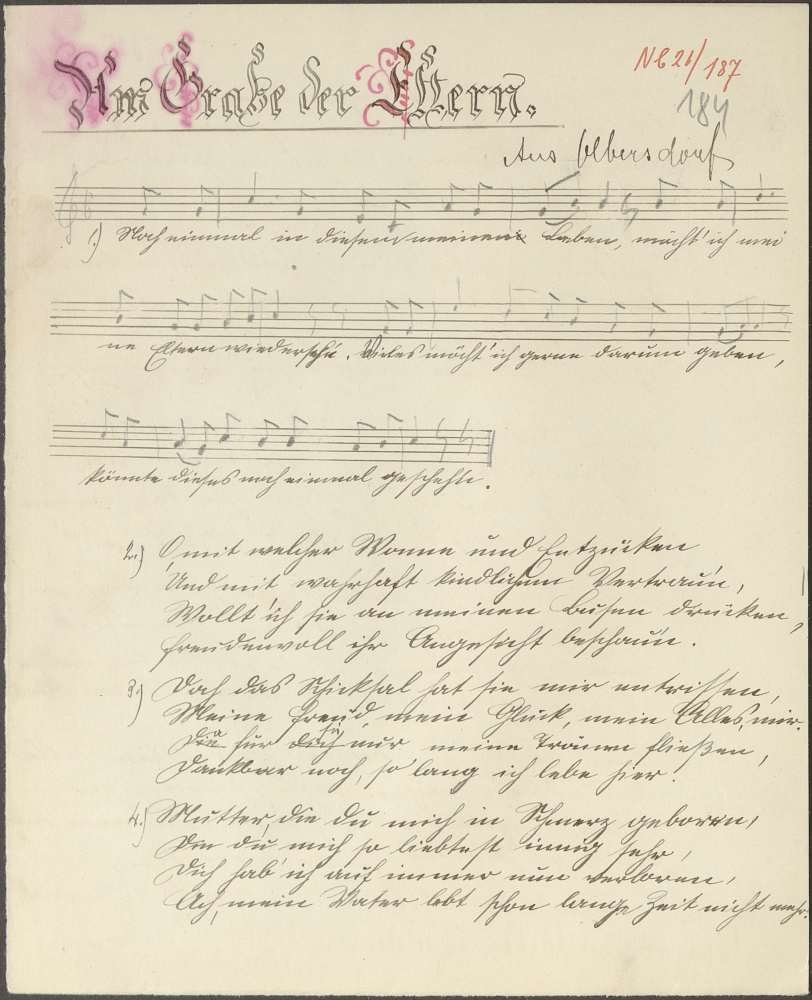 Am Grabe der Eltern.
NC 26/187
184
Aus Olbersdorf
1.) Noch einmal in diesem meinem Leben, möcht' ich mei
ne Eltern wiedersehn. Vieles möcht' ich gerne darum geben,
könnte dieses noch einmal geschehn.
2.) O mit welcher Wonne und Entzücken
Und mit wahrhaft kindlichem Vertraun,
Wollt' ich sie an meinen Busen drücken,
freudenvoll ihr Angesicht beschaun.
3.) Doch das Schicksal hat sie mir entrissen,
Meine Freud, mein Glück, mein Alles mir.
für nur meine Tränen fließen,
Dankbar noch, so lang ich lebe hier.
4.) Mutter, die du mich in Schmerz geboren,
du mich so liebtest innig sehr,
Dich hab' ich auf immer nun verloren,
Ach, mein Vater lebt schon lange Zeit nicht mehr.